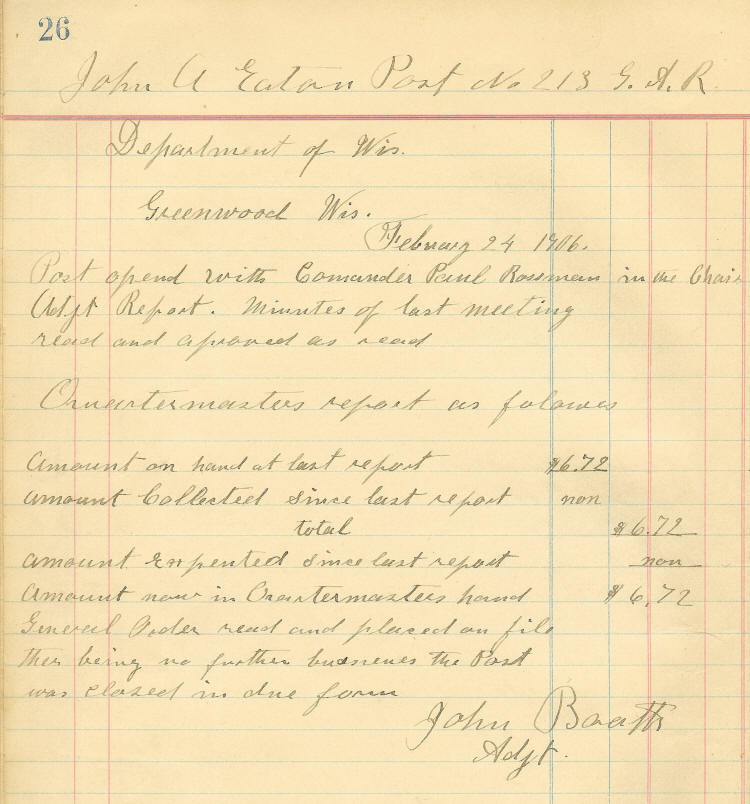 26
John A Eaton Post No 213 G. A. R.
Department of Wis.
Greenwood Wis.
February 24 1906.
Post opend with Comander Paul Rossman in the Chair
Adjt Report. Minutes of last meeting
read and aproved as read
Quartermasters report as folowes
Amount on hand at last report $6.72
amount Collected since last report non
total $6.72
amount Expented since last report non
Amount now in Quartermasters hand $6.72
General Order read and placed on file
ther being no further the Post
was closed in due form
John
Adjt.